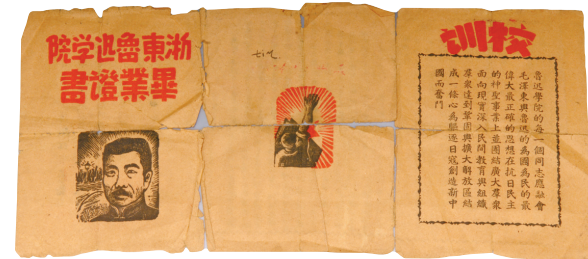 浙東魯迅学院
畢業證書
校訓
魯迅學院的每一個同志應融會
毛澤東與魯迅的為國為民的最
偉大最正確的思想在抗日民主
的神聖事業上並團結廣大羣衆
面向現實深入民間教育與組織
羣衆達到鞏固與擴大解放區結
成一條心為驅逐日寇創造新中
國而奮鬥